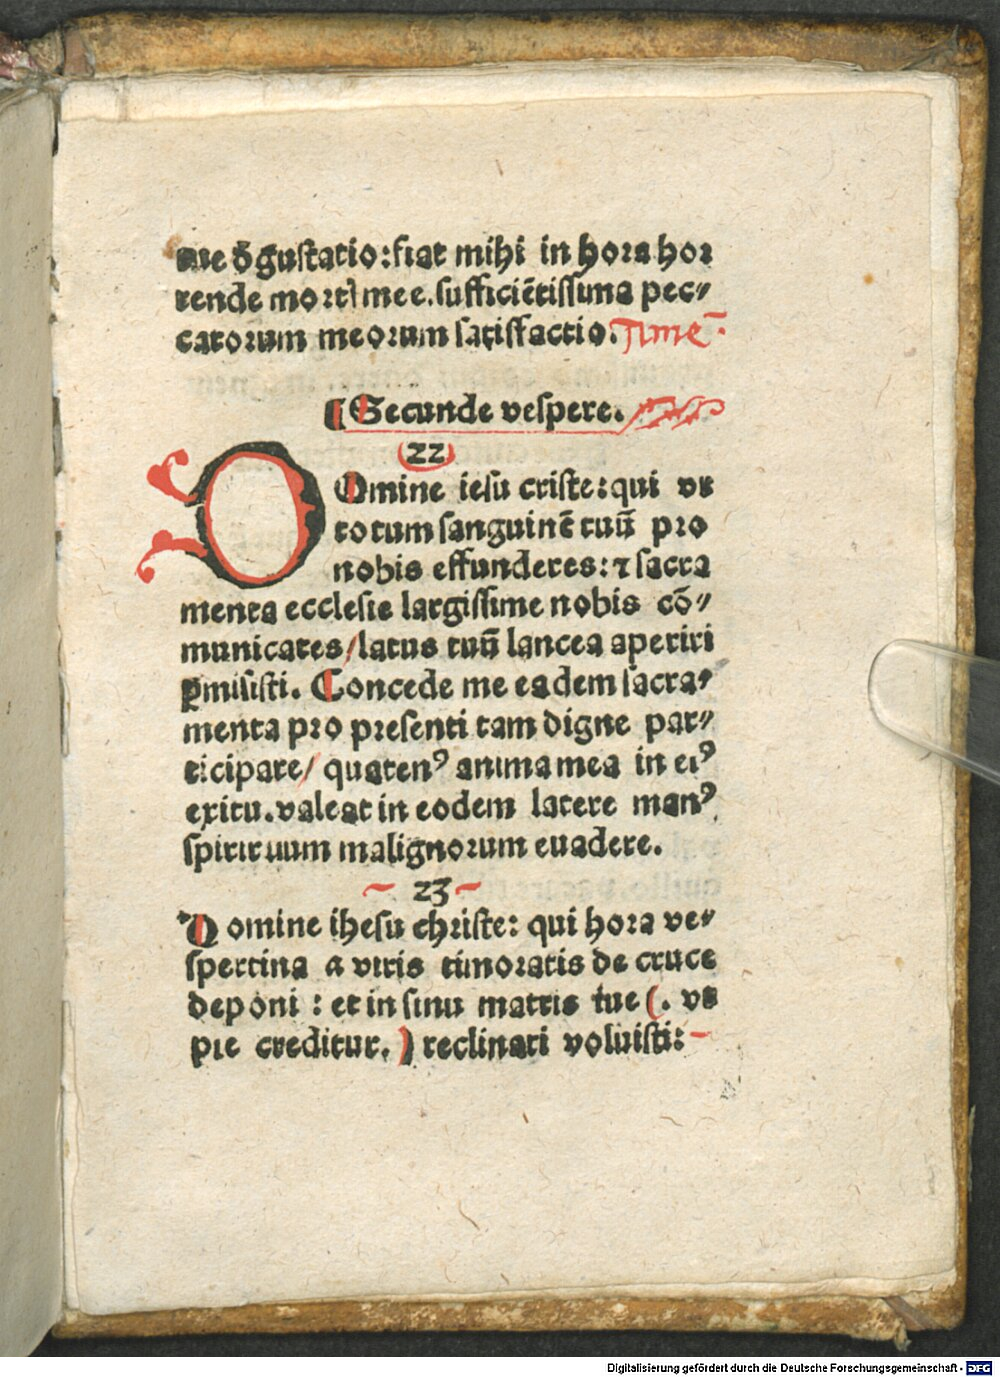 me d̄gustatio: fiat mihi in hora hor
rende mort! mee. sufficiētissima pec⸗
catorum meorum satisfactio. Time
¶ Secunde vespere.
22
DOmine iesu criste: qui vt
totum sanguinē tuū pro
nobis effunderes: ⁊ sacra
menta ecclesie largissime nobis cō⸗
municates / latus tuū lancea aperiri
ꝑmisisti. Concede me eadem sacra⸗
menta pro presenti tam digne par⸗
ticipare / quatenꝰ anima mea in eiꝰ
exitu. valeat in eodem latere manꝰ
spirituum malignorum euadere.
23
Domine ihesu christe: qui hora ve⸗
spertina a viris timoratis de cruce
deponi : et in sinu matris tue (. vt
pie creditur. ) reclinari voluisti:
Digitalisierung gefördert durch die Deutsche Forschungsgemeinschaft - DFG